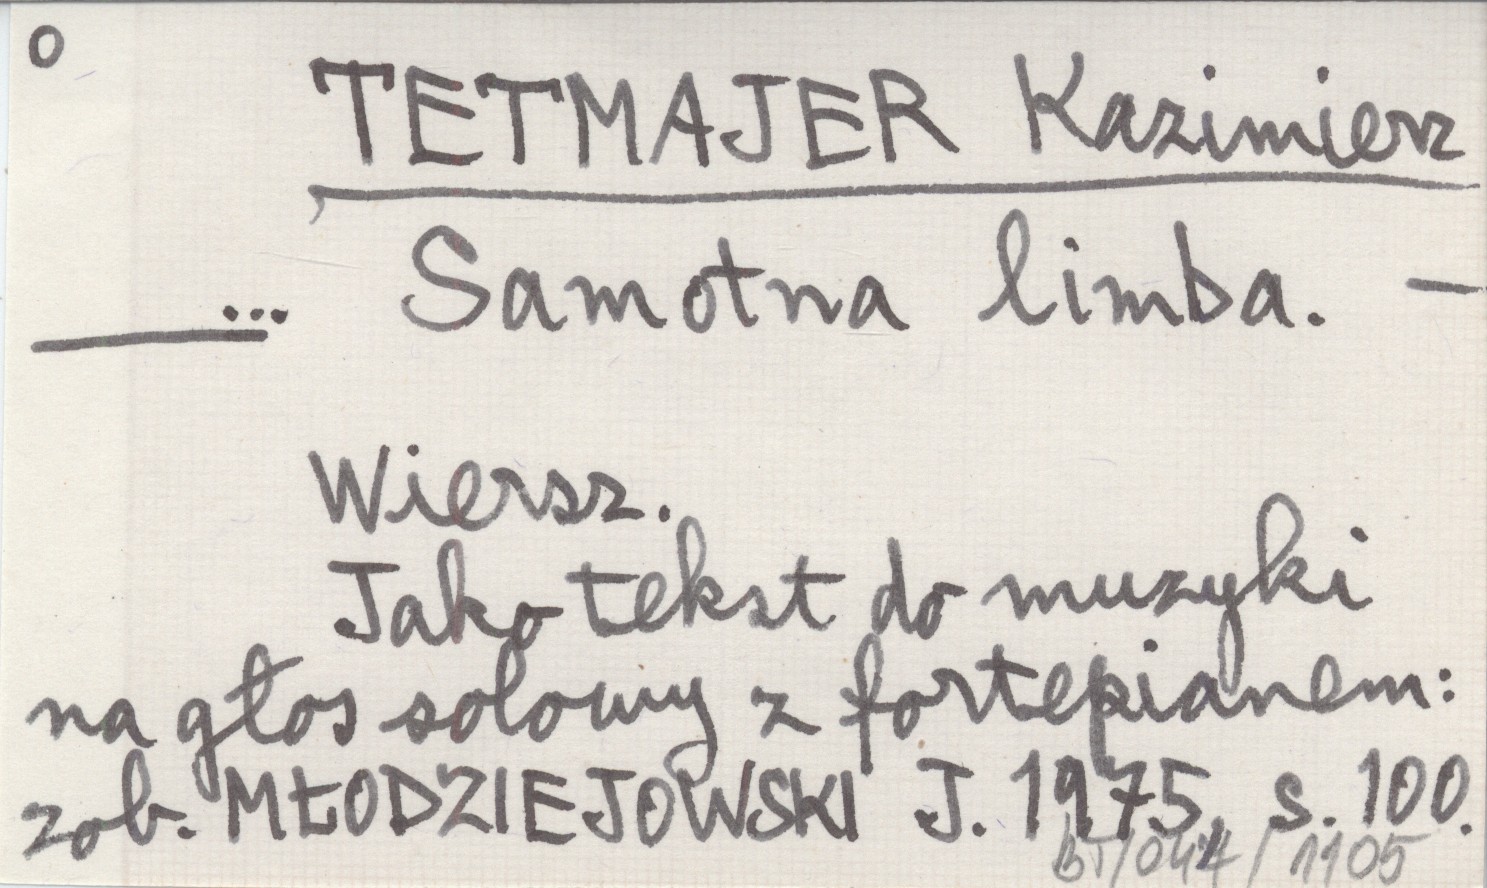 O
TETMAJER Kazimierz
... Samotna limba. —
Wiersz.
Jako tekst do muzyki
na głos solowy z fortepianem:
zob. MŁODZIEJOWSKI J. 1975, s. 100.
/ 1105